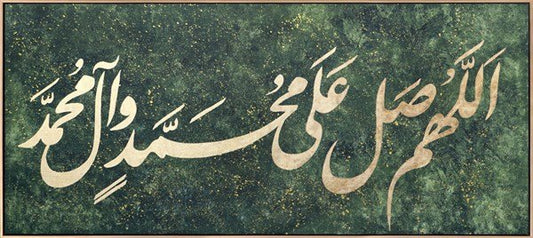 اَللَّهُمَّ صَلِّ عَلَى مُحَمَّدٍ وَآلِ مُحَمَّدٍ